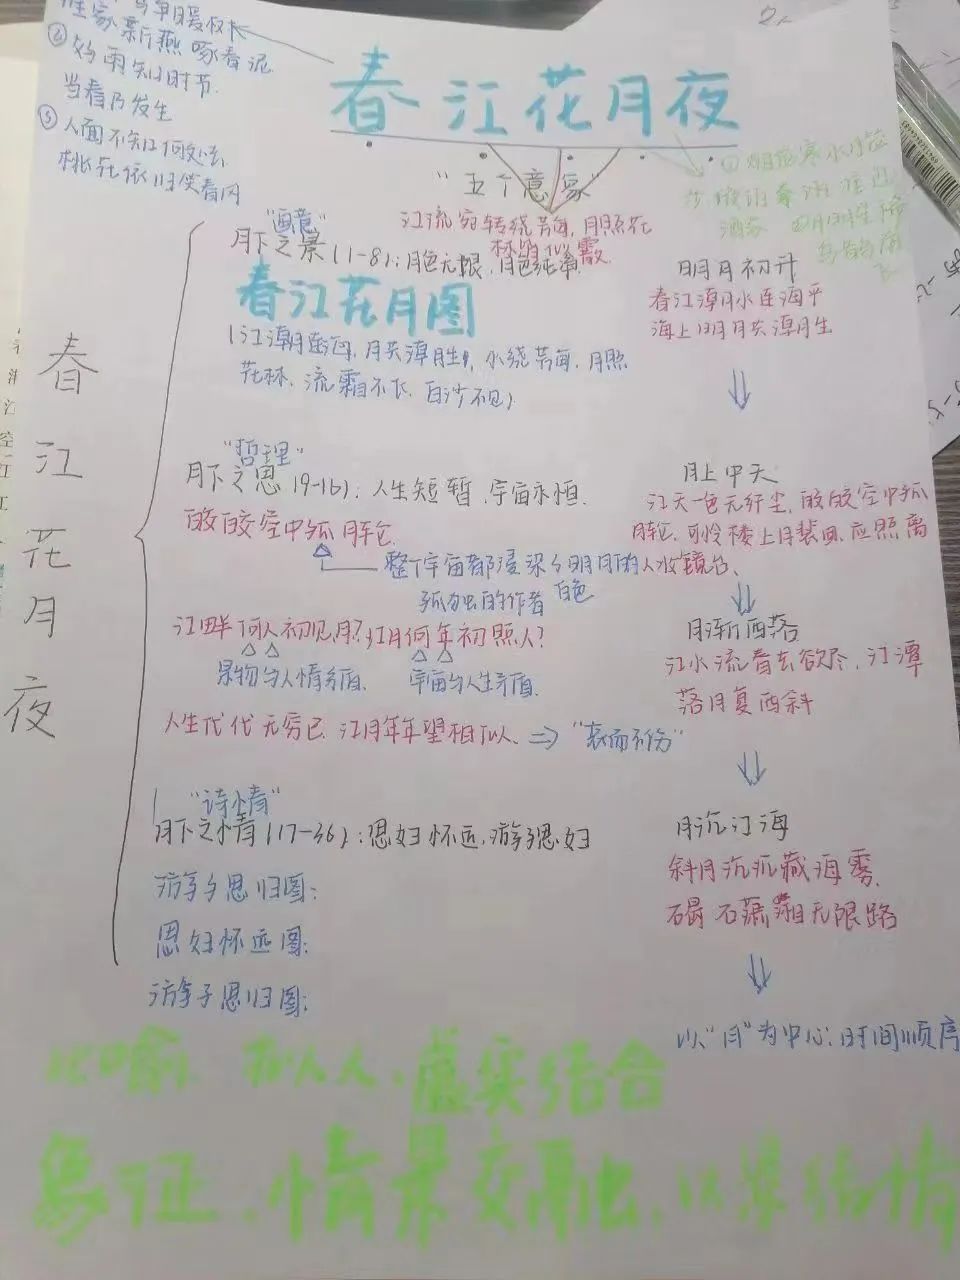 谁家新燕啄春泥
② 好雨知时节
当春乃发生
③ 人面不知何处去
桃花依旧笑春风
春江花月夜
"五个意象"
江流宛转绕芳甸，月照花
林皆似霰
烟笼寒水月笼
沙 夜泊秦淮近
酒家
"画意"
月下之景(1-8)：月色无限，月色纯净
春江花月图
(江潮连海，月共潮生，水绕芳甸，月照
花林，流霜不飞，白沙不见)
明月初升
春江潮水连海平
海上明月共潮生
春江花月夜
"哲理"
月下之思(9-16)：人生短暂，宇宙永恒
皎皎空中孤月轮
整个宇宙都浸染了明月的
白色
孤独的作者
月上中天
江天一色无纤尘，皎皎空中孤
月轮，可怜楼上月裴回，应照离
人妆镜台、
江畔何人初见月？江月何年初照人？
景物与人情矛盾
宇宙与人生矛盾
月渐西落
江水流春去欲尽，江潭
落月复西斜
人生代代无穷已 江月年年望相似、⇒"哀而不伤"
"诗情"
月下之情(17-36)：思妇怀远，游子思妇
月沉江海
斜月沉沉藏海雾，
碣石潇湘无限路
游子思归图：
思妇怀远图：
游子思归图：
以"月"为中心：时间顺序
比喻、拟人、虚实结合
象征、情景交融、以景结情